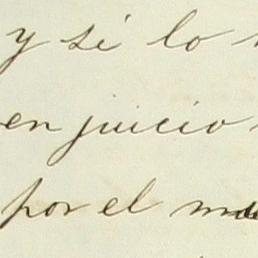 y sí lo
en juicio
por el